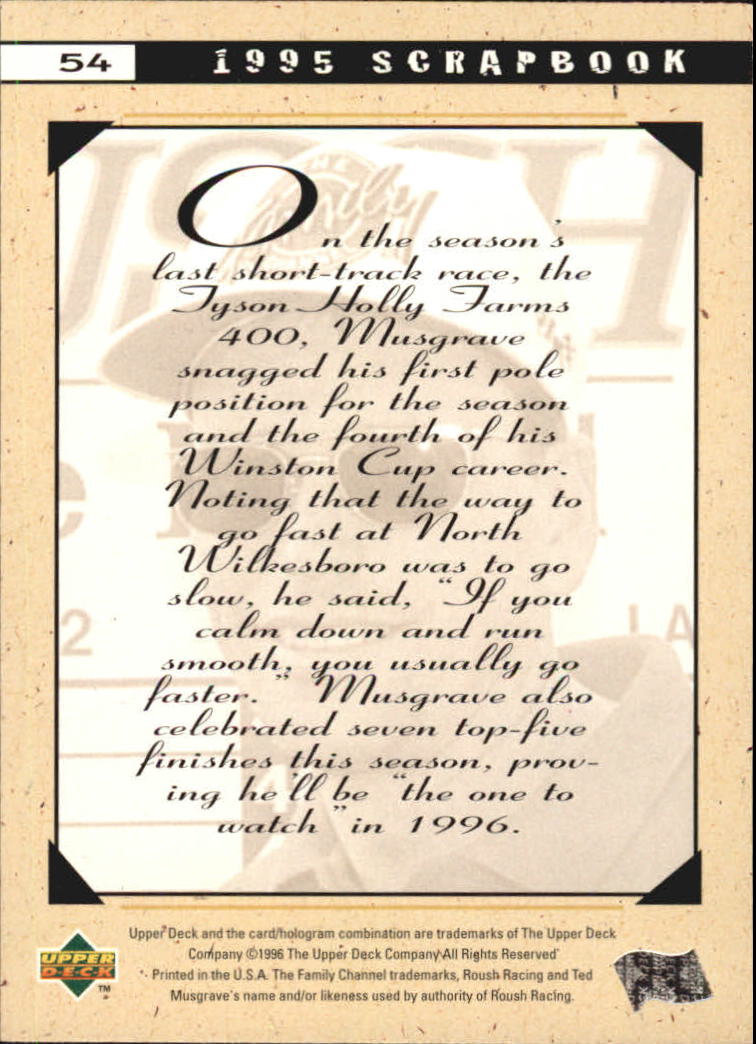 54 1995 SCRAPBOOK
On the season's
last short-track race, the
Tyson Holly Farms
400, Musgrave
snagged his first pole
position for the season
and the fourth of his
Winston Cup career.
Noting that the way to
go fast at North
Wilkesboro was to go
slow, he said, "If you
calm down and run
smooth, you usually go
faster." Musgrave also
celebrated seven top-five
finishes this season, prov-
ing he'll be "the one to
watch" in 1996.
Upper Deck and the card/hologram combination are trademarks of The Upper Deck
Company ©1996 The Upper Deck Company All Rights Reserved
Printed in the U.S.A. The Family Channel trademarks, Roush Racing and Ted
Musgrave's name and/or likeness used by authority of Roush Racing.
UPPER
DECK
TM